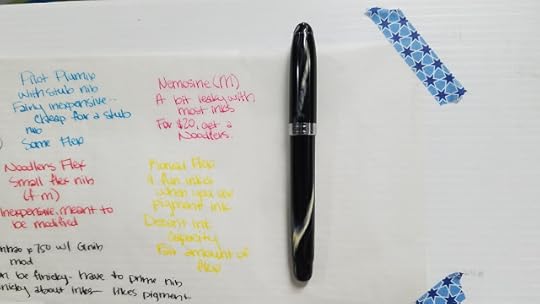 Pilot Plumix
with stub nib
Fairly inexpensive..
cheap for a stub
nib
Some flop
Nemosine (M)
A bit leaky with
most inks
For $20, get a
Noodlers.
Noodlers Flex
Small flex nib
(f-m)
Inexpensive, meant to
be modified
flop
when you use
pigment ink
Decent ink
capacity
Fair amount of
flop
p750 w/
mod
be finicky - have to prime nib
about inks - likes pigment